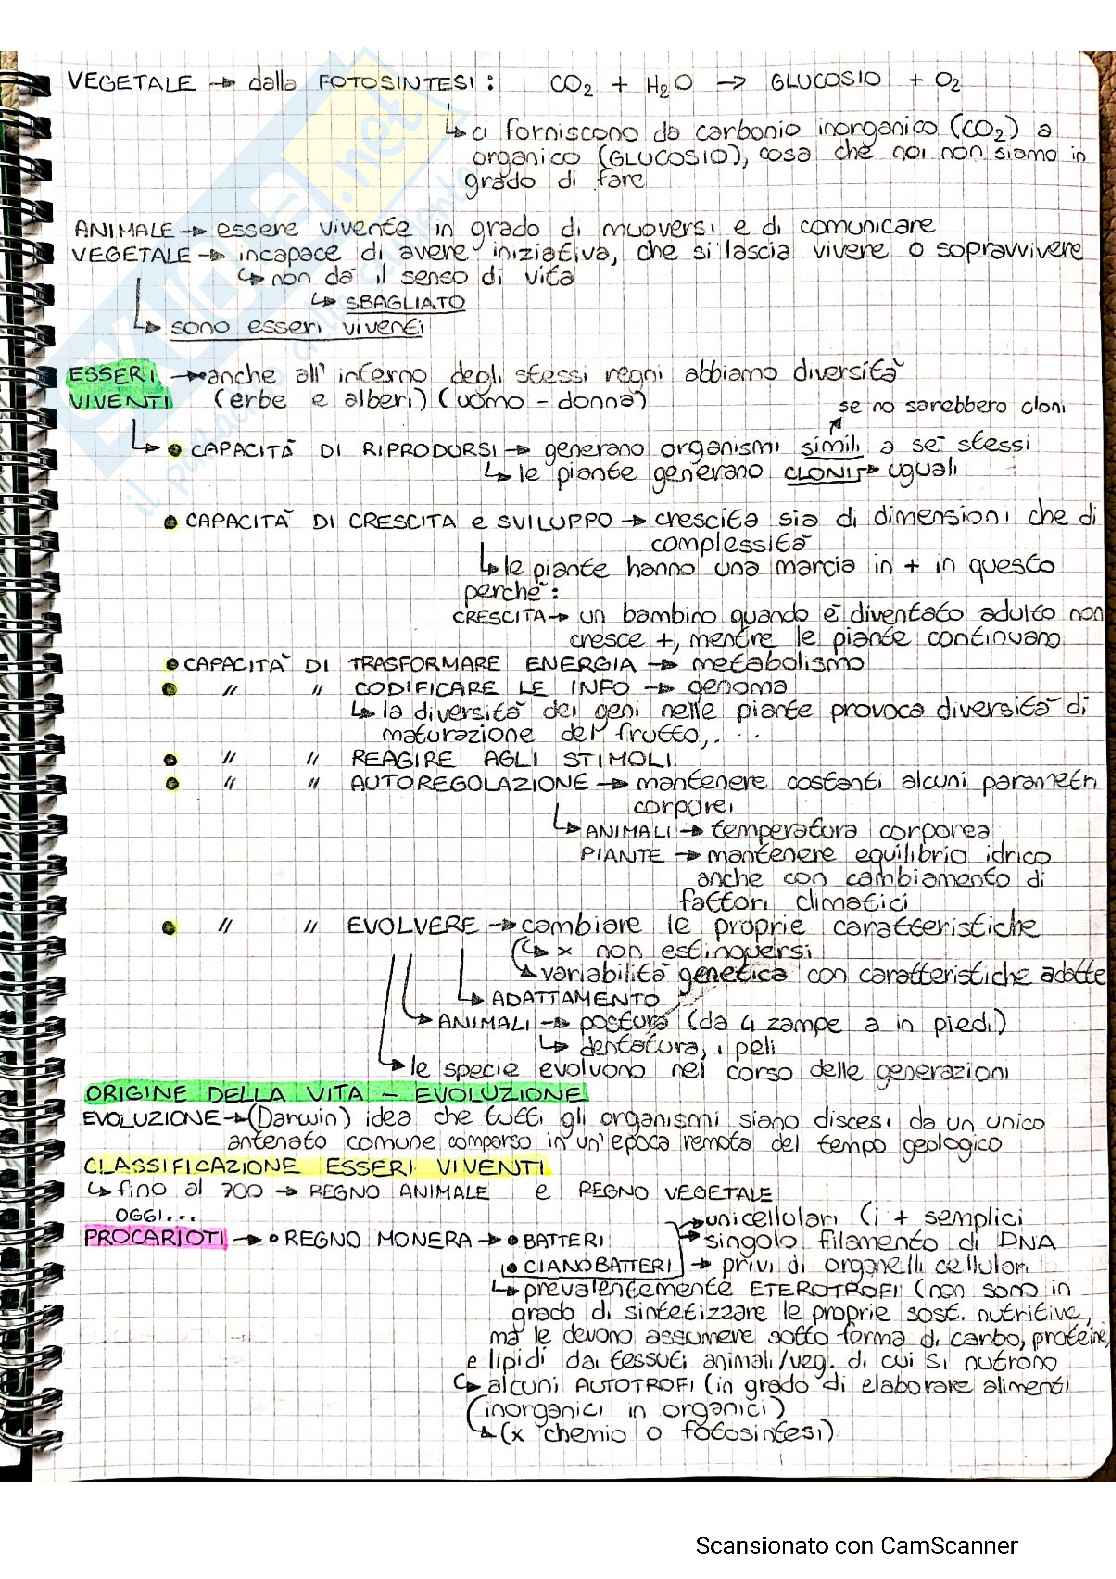 VEGETALE → dalla FOTOSINTESI: CO2 + H2O → GLUCOSIO + O2
↳ ci forniscono da carbonio inorganico (CO2) a
organico (GLUCOSIO), cosa che noi non siamo in
grado di fare
ANIMALE → essere vivente in grado di muoversi e di comunicare
VEGETALE → incapace di avere iniziativa, che si lascia vivere o sopravvivere
↳ non dà il senso di vita
↳ SBAGLIATO
↳ sono esseri viventi
ESSERI → anche all'interno degli stessi regni abbiamo diversità
VIVENTI (erbe e alberi) (uomo - donna)
se no sarebbero cloni
↳ • CAPACITÀ DI RIPRODURSI → generano organismi simili a sé stessi
↳ le piante generano CLONI → uguali
• CAPACITÀ DI CRESCITA e SVILUPPO → crescita sia di dimensioni che di
complessità
↳ le piante hanno una marcia in + in questo
perché:
CRESCITA → un bambino quando è diventato adulto non
cresce +, mentre le piante continuano
• CAPACITÀ DI TRASFORMARE ENERGIA → metabolismo
• " " CODIFICARE LE INFO → genoma
↳ la diversità dei geni nelle piante provoca diversità di
maturazione del frutto,...
• " " REAGIRE AGLI STIMOLI
• " " AUTOREGOLAZIONE → mantenere costanti alcuni parametri
corporei
↳ ANIMALI → temperatura corporea
PIANTE → mantenere equilibrio idrico
anche con cambiamento di
fattori climatici
• " " EVOLVERE → cambiare le proprie caratteristiche
(↳ x non estinguersi
↳ variabilità genetica con caratteristiche adatte
↳ ADATTAMENTO
↳ ANIMALI → postura (da 4 zampe a in piedi)
↳ dentatura, i peli
↳ le specie evolvono nel corso delle generazioni
ORIGINE DELLA VITA - EVOLUZIONE
EVOLUZIONE → (Darwin) idea che tutti gli organismi siano discesi da un unico
antenato comune comparso in un'epoca remota del tempo geologico
CLASSIFICAZIONE ESSERI VIVENTI
↳ fino al 700 → REGNO ANIMALE e REGNO VEGETALE
OGGI...
→ unicellulari (i + semplici
PROCARIOTI → • REGNO MONERA → • BATTERI → singolo filamento di DNA
• CIANOBATTERI → privi di organelli cellulari
↳ prevalentemente ETEROTROFI (non sono in
grado di sintetizzare le proprie sost. nutritive,
ma le devono assumere sotto forma di carbo, proteine
e lipidi dai tessuti animali/veg. di cui si nutrono
↳ alcuni AUTOTROFI (in grado di elaborare alimenti
(inorganici in organici)
↳ (x chemio o fotosintesi)
Scansionato con CamScanner